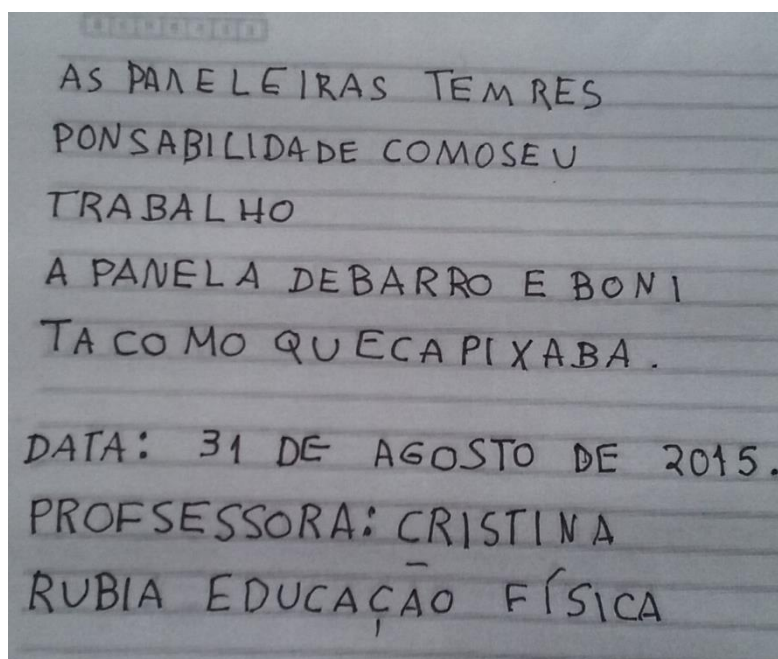 AS PANELEIRAS TEM RES
PONSABILIDADE COMOSEU
TRABALHO
A PANELA DEBARRO E BONI
TA COMO QUECAPIXABA.
DATA: 31 DE AGOSTO DE 2015.
PROFSESSORA: CRISTINA
RUBIA EDUCAÇÃO FÍSICA